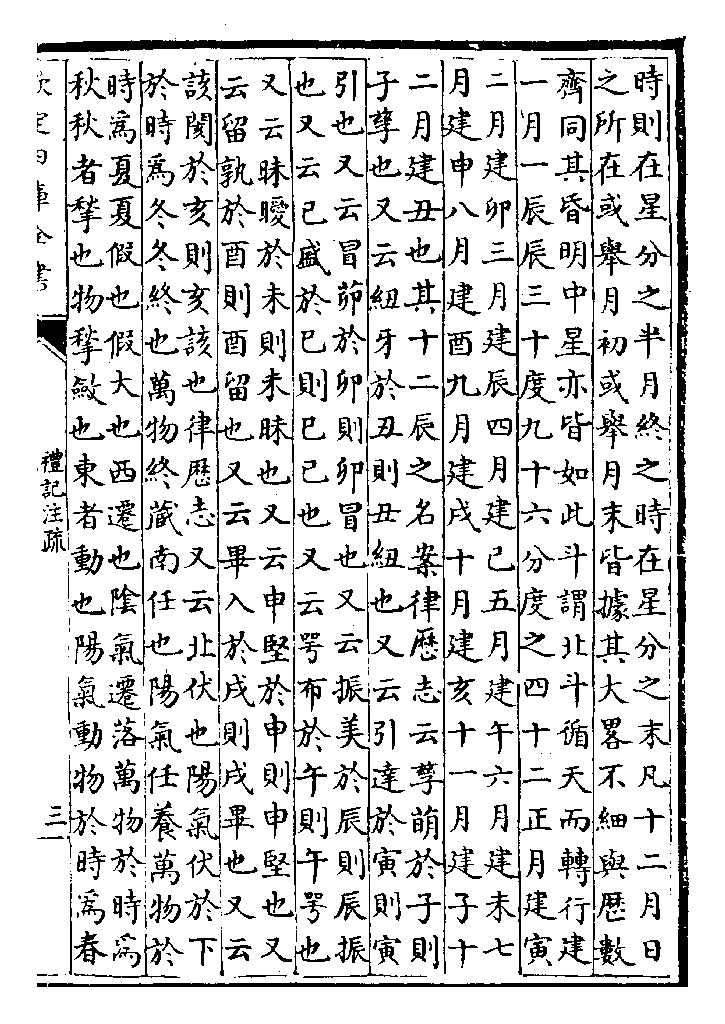 時則在星分之半月終之時在星分之末凡十二月日
之所在或舉月初或舉月末皆據其大畧不細與歷數
齊同其昏明中星亦皆如此斗謂北斗循天而轉行建
一月一辰辰三十度九十六分度之四十二正月建寅
二月建卯三月建辰四月建巳五月建午六月建未七
月建申八月建酉九月建戌十月建亥十一月建子十
二月建丑也其十二辰之名案律歷志云孳萌於子則
子孳也又云紐牙於丑則丑紐也又云引達於寅則寅
引也又云冒茆於卯則卯冒也又云振美於辰則辰振
也又云已盛於巳則巳已也又云咢布於午則午咢也
又云昧曖於未則未昧也又云申堅於申則申堅也又
云留孰於酉則酉留也又云畢入於戌則戌畢也又云
該閡於亥則亥該也律歷志又云北伏也陽氣伏於下
於時爲冬冬終也萬物終藏南任也陽氣任養萬物於
時爲夏夏假也假大也西遷也隂氣遷落萬物於時爲
秋秋者揫也物揫斂也東者動也陽氣動物於時爲春
欽定四庫全書
禮記注疏
三